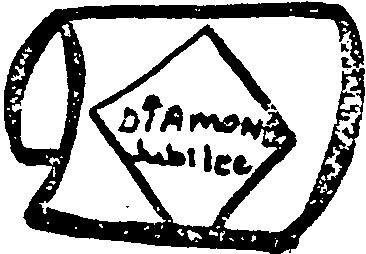 DIAMON
Jubilee